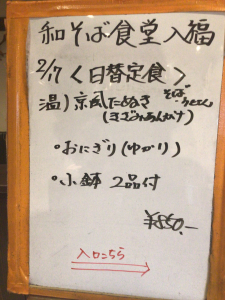 和そば食堂入福
2/17 〈日替定食〉
温)京風たぬき そば・うどん
(きざみあんかけ)
・おにぎり(ゆかり)
・小鉢 2品付
¥850.-
入口こちら